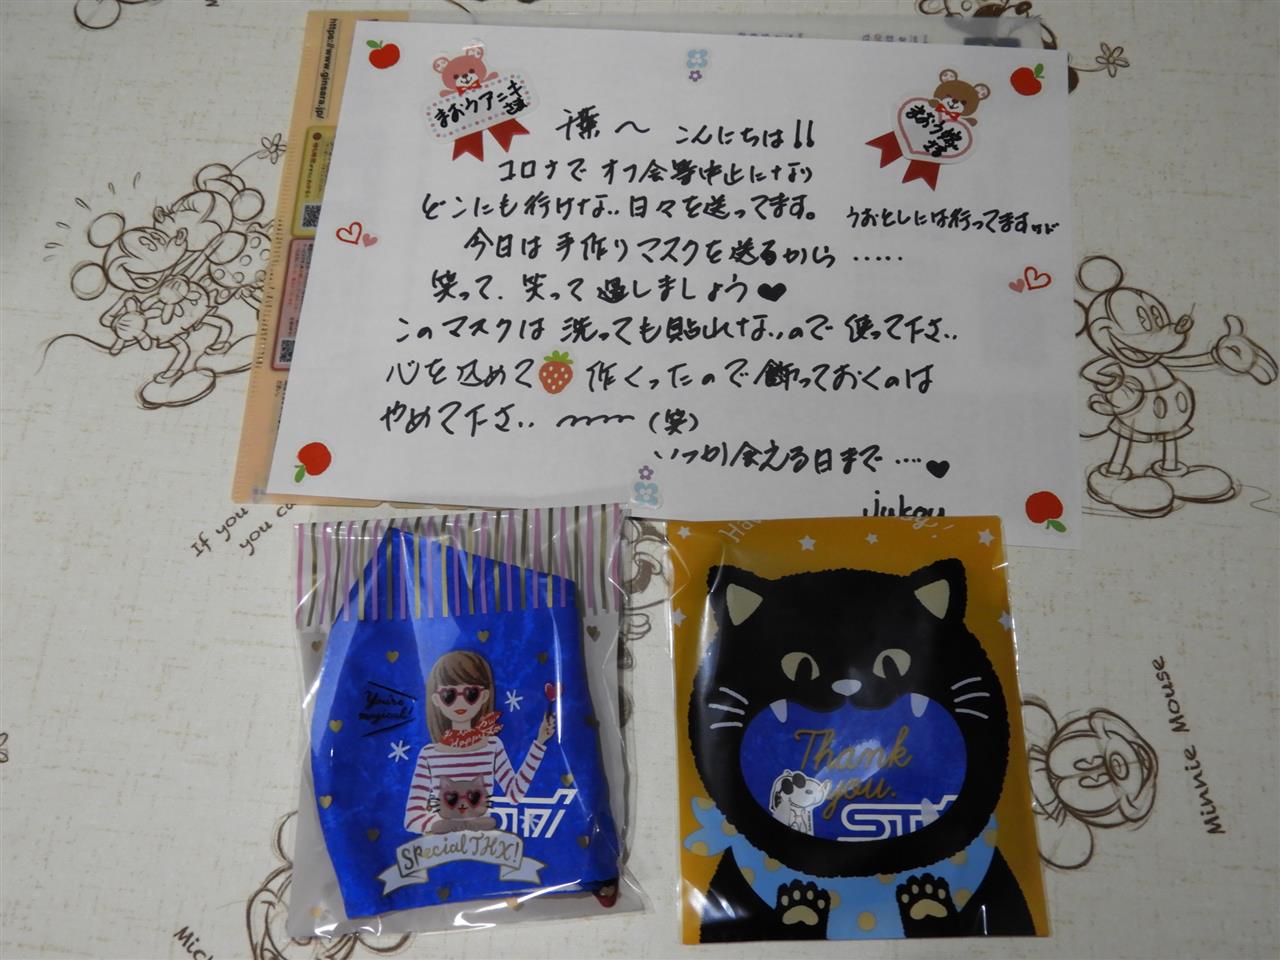 https://www.ginsara.jp/
まおうアニキ様
まおう嫁様
千葉〜 こんにちは!!
コロナで オフ会等中止になり
どこにも行けない日々を送ってます。
うおとしには行ってますけど
今日は手作りマスクを送るから……
笑って、笑って過しましょう♥
このマスクは洗っても貼れないので使って下さい
心を込めて🍓作くったので飾っておくのは
やめて下さい 〜〜〜(笑)
いつか会える日まで…♥
If you
you ca
You're
magical!
Special THX!
Thank
you.
STI
Minnie Mouse